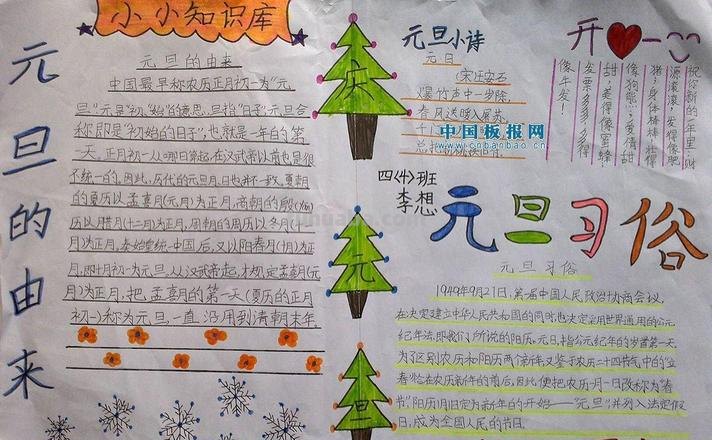 元旦的由来
小小知识库
元旦的由来
中国最早称农历正月初一为“元
旦”元是“初”“始”的意思，旦指“日子”元旦合
称即是“初始的日子”，也就是一年的第
一天。正月初一从哪日算起，在汉武帝以前也是很
不统一的。因此，历代的元旦月、日也并不一致。夏朝
的夏历以孟喜月(元月)为正月，商朝的殷(yīn)
历以腊月(十二月)为正月，周朝的周历以冬月(十一
月)为正月。秦始皇统一中国后，又以阳春月(十月)为正
月，即十月初一为元旦，从汉武帝起，才规定孟喜月(元
月)为正月，把孟喜月的第一天(夏历的正月
初一)称为元旦，一直沿用到清朝末年。
庆
元
旦
元旦小诗
元日
(宋)王安石
爆竹声中一岁除，
春风送暖入屠苏。
中国板报网
www.cnbanbao.cn
四〈4〉班
李想
开一
祝你新的一年里：财
源滚滚，发得像肥
猪；身体棒棒，壮得
像狗熊；爱情甜
甜，美得像蜜蜂；
发票多多，多得
像牛发！
元旦习俗
元旦习俗
1949年9月27日，第一届中国人民政治协商会议，
在决定建立中华人民共和国的同时，也决定采用世界通用的公元
纪年法，即我们所说的阳历。元旦，指公元纪年的岁首第一天
为了区别农历和阳历两个新年，又鉴于农历二十四节气中的“立
春”恰在农历新年的前后，因此便把农历一月一日改称为“春
节”，阳历一月一日定为新年的开始——“元旦”并列入法定假
日，成为全国人民的节日。